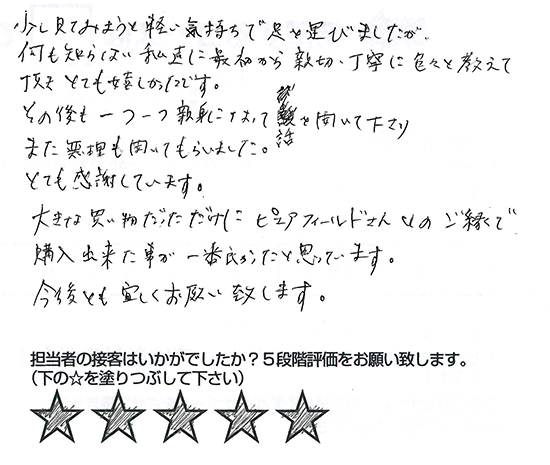 少し見てみようと軽い気持ちで足を運びましたが、
何も知らない私達に最初から親切、丁寧に色々と教えて
頂き とても嬉しかったです。
その後も 一つ一つ親身になって 話を聞いて下さり
また無理も聞いてもらいました。
とても感謝しています。
大きな買い物だっただけに ピュアフィールドさんとの ご縁で
購入出来た事が 一番良かったと思っています。
今後とも宜しくお願い致します。
担当者の接客はいかがでしたか？５段階評価をお願い致します。
（下の☆を塗りつぶして下さい）